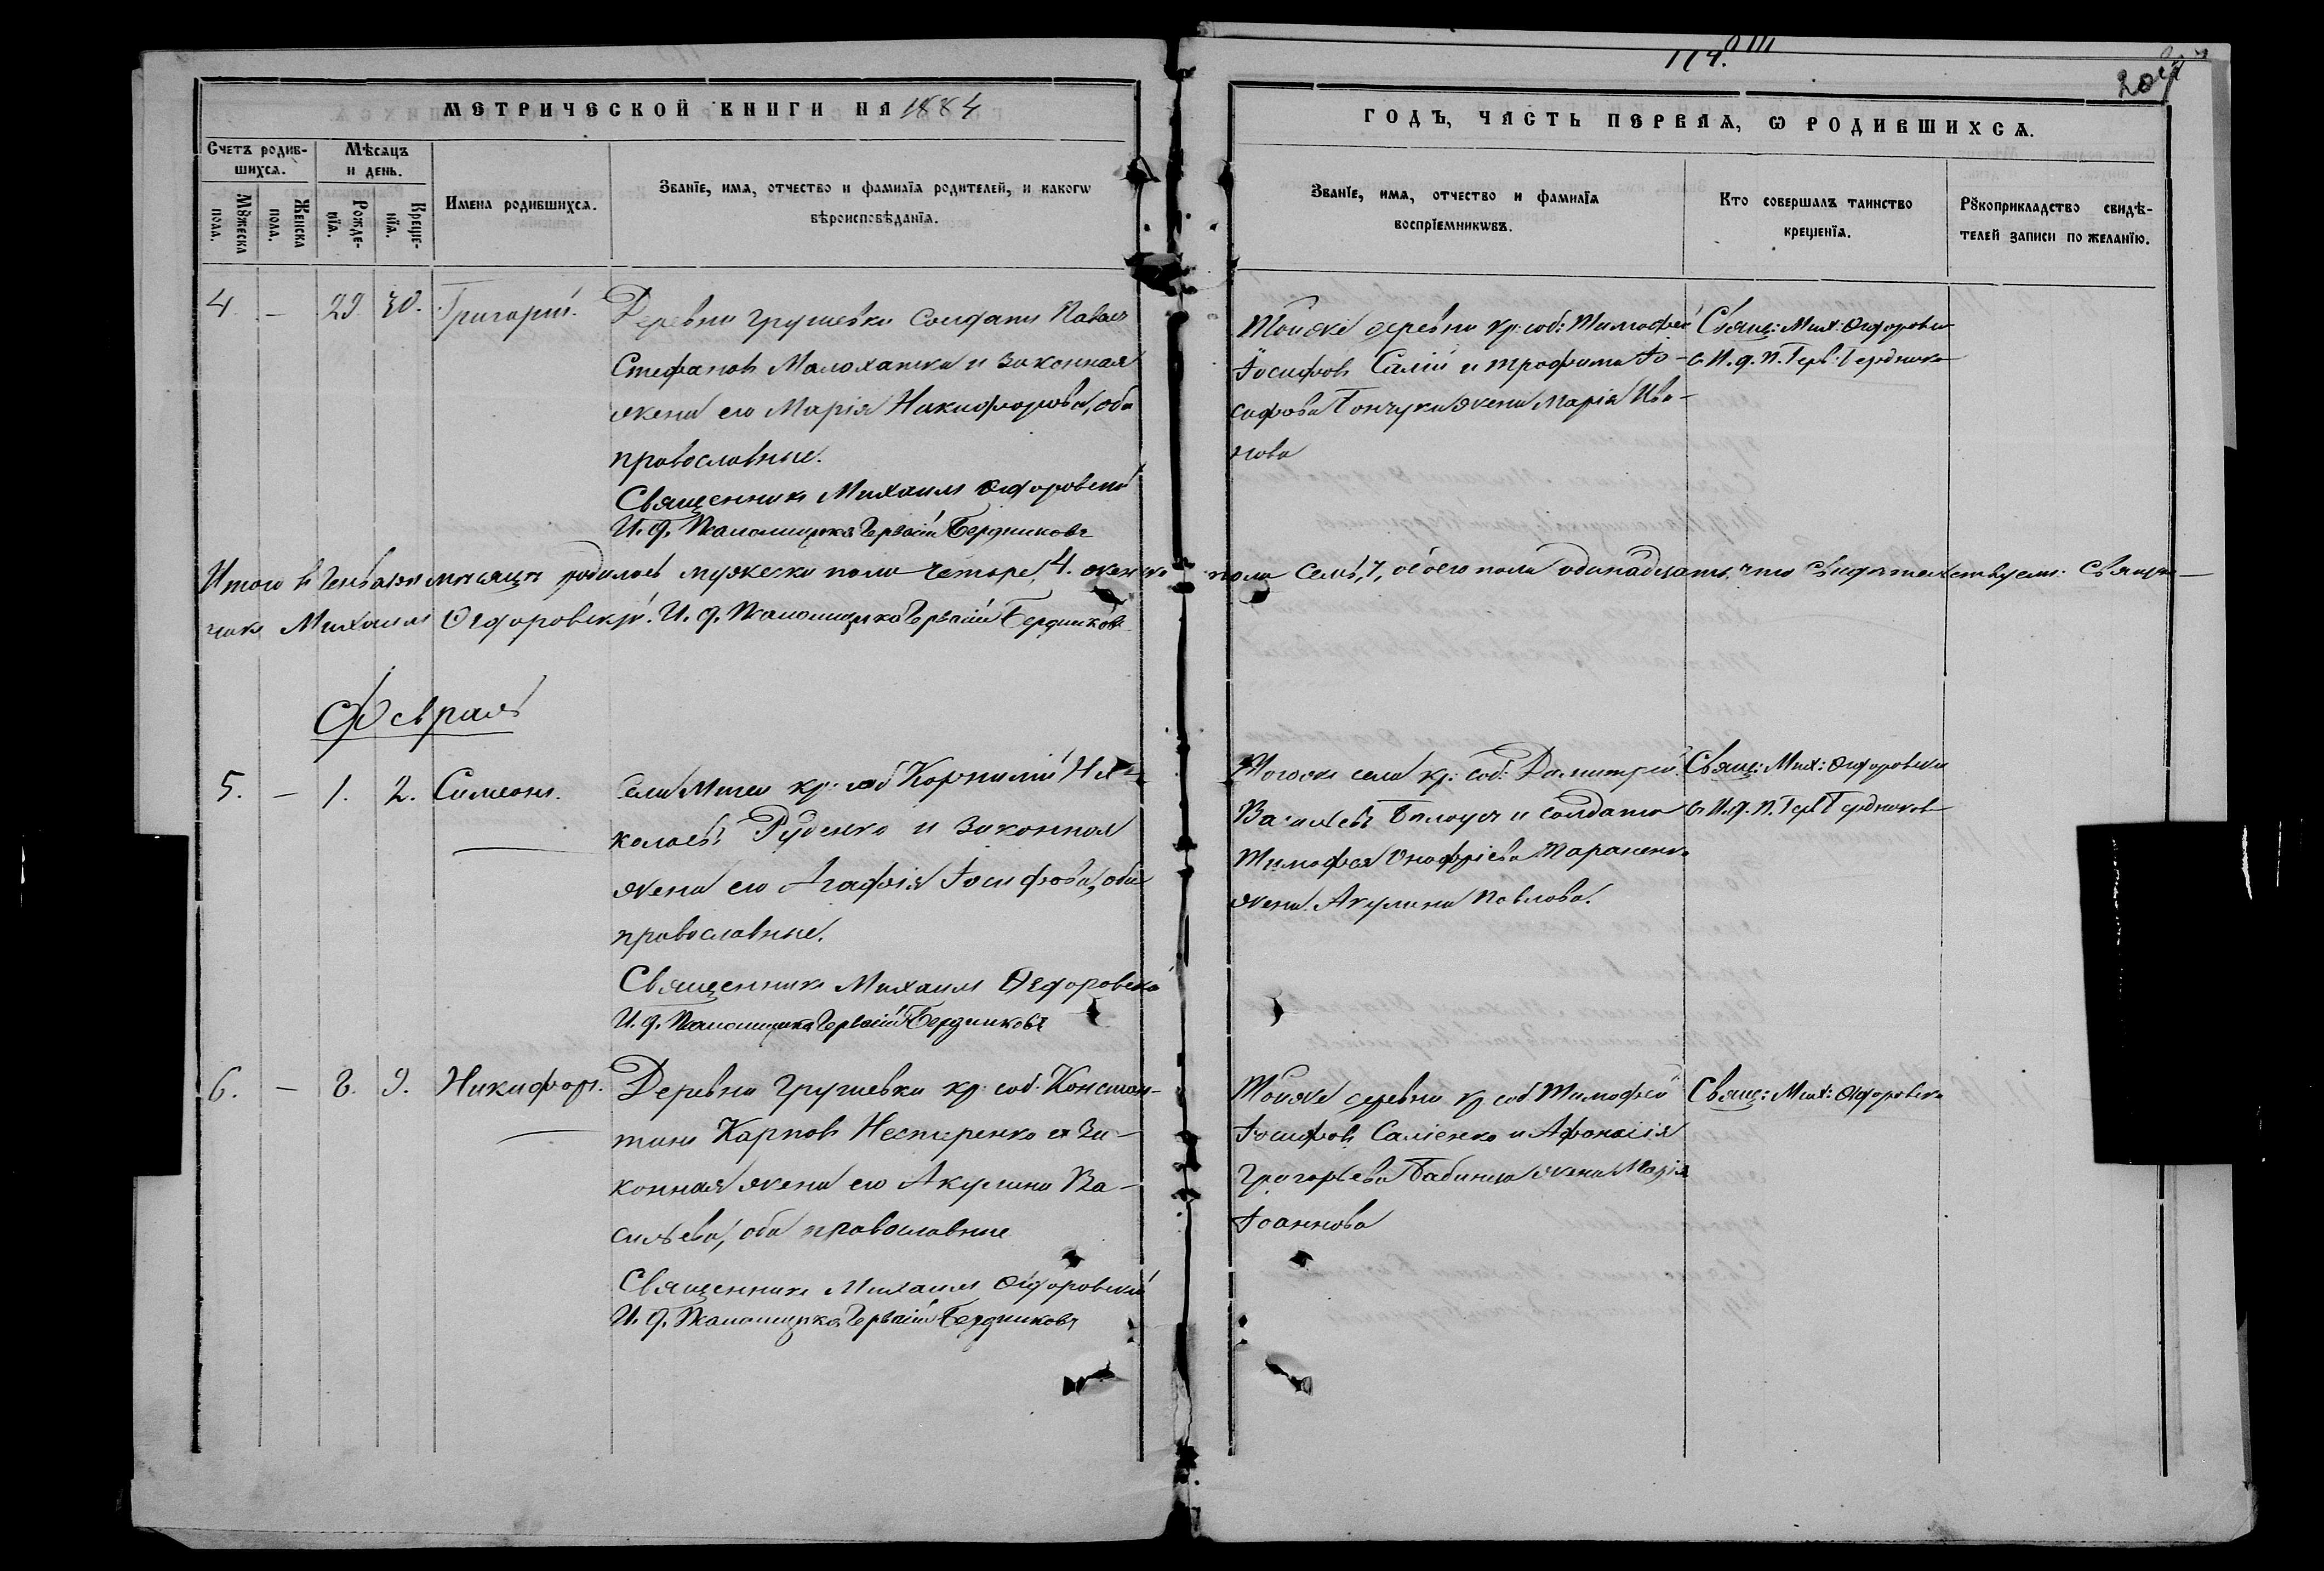 114.
204
МЕТРИЧЕСКОЙ КНИГИ НА 1884
ГОДЪ, ЧАСТЬ ПЕРВАѦ, Ѡ РОДИВШИХСѦ.
Счетъ родив-
шихсѧ.
Мѣсѧцъ
и день.
Мꙋжеска
пола.
Женска
пола.
Рожде-
нїѧ.
Креще-
нїѧ.
Имена родившихсѧ.
Званїе, имѧ, отчество и фамилїѧ родителей, и какогѡ
вѣроисповѣданїѧ.
Званїе, имѧ, отчество и фамилїѧ
воспрїемникѡвъ.
Кто совершалъ таинство
крещенїѧ.
Рꙋкоприкладство свидѣ-
телей записи по желанїю.
4 — 29 30. Григорій.
Деревни Грушевки солдатъ Павелъ
Стефановъ Малохатка и законная
жена его Марія Никифорова, оба
православные.
Священникъ Михаилъ Ѳедоровскій
И. д. Псаломщика Гервасій Бердниковъ
Тойже деревни кр: соб: Тимофей
Іосифовъ Салій и Трофима Іо-
сифова Гончука жена Марія Ива-
нова
Свящ: Мих: Ѳедоровск
съ И. д. П. Герв: Бердников
Итого въ Генварѣ мѣсяцѣ родилось мужеска пола четыре, 4. женска пола семь, 7, обоего пола одинадцать, что свидѣтельствуемъ: Священ-
никъ Михаилъ Ѳедоровскій. И. д. Псаломщика Гервасій Бердниковъ
Февраль
5. — 1. 2. Симеонъ.
Села кр: соб Корнилій Ни-
колаевъ Руденко и законная
жена его Агафія Іосифова, оба
православные.
Священникъ Михаилъ Ѳедоровскій
И. д. Псаломщика Гервасій Бердниковъ
Тогоже села кр: соб: Димитрій
Васильевъ Билоусъ и солдата
Тимофея Онофріева Тараненка
жена Акулина Павлова.
Свящ: Мих: Ѳедоровски
съ И. д. П. Герв Бердников
6. — 8. 9. Никифоръ.
Деревни Грушевки кр: соб. Констан-
тинъ Карповъ Нестеренко и за-
конная жена его Акулина Ва-
сильева, оба православные
Священникъ Михаилъ Ѳедоровскій
И. д. Псаломщика Гервасій Бердниковъ
Тойже деревни кр соб. Тимофей
Іосифовъ Саліенко и Афанасія
Григорьева Бабинца жена Марія
Іоаннова
Свящ: Мих: Ѳедоровск